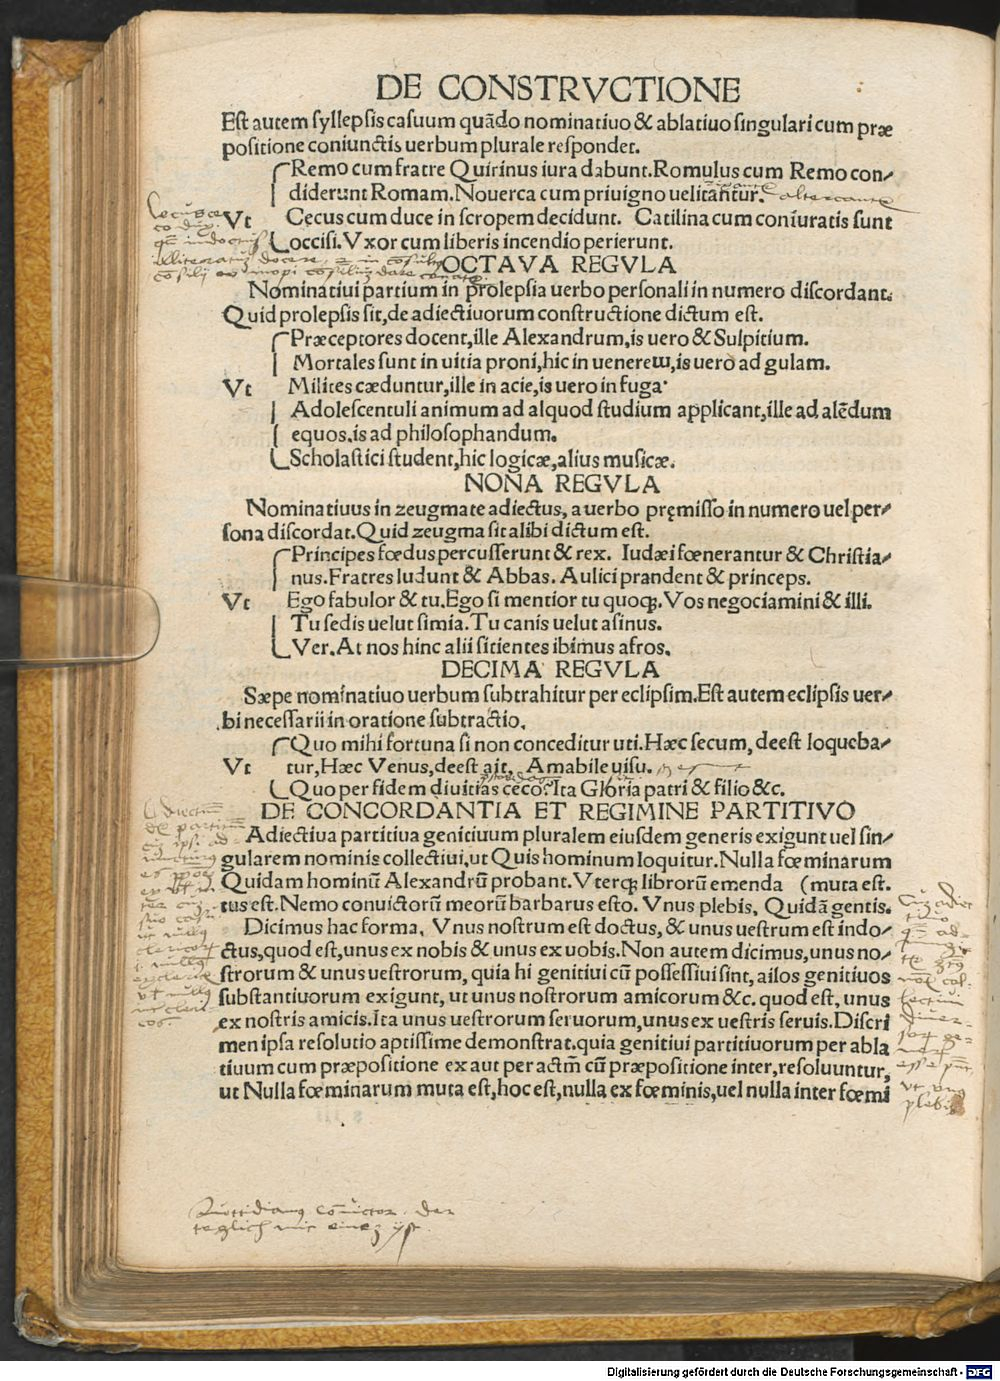 DE CONSTRVCTIONE
Est autem syllepsis casuum quādo nominatiuo & ablatiuo singulari cum præ
positione coniunctis uerbum plurale respondet.
Remo cum fratre Quirinus iura dabunt. Romulus cum Remo con⸗
diderunt Romam. Nouerca cum priuigno uelitantur.
Vt Cecus cum duce in scropem decidunt. Catilina cum coniuratis sunt
occisi. Vxor cum liberis incendio perierunt.
OCTAVA REGVLA
Nominatiui partium in prolepsi a uerbo personali in numero discordant.
Quid prolepsis sit, de adiectiuorum constructione dictum est.
Præceptores docent, ille Alexandrum, is uero & Sulpitium.
Mortales sunt in uitia proni, hic in uenerem, is uero ad gulam.
Vt Milites cæduntur, ille in acie, is uero in fuga.
Adolescentuli animum ad alquod studium applicant, ille ad alēdum
equos. is ad philosophandum.
Scholastici student, hic logicæ, alius musicæ.
NONA REGVLA
Nominatiuus in zeugmate adiectus, a uerbo pręmisso in numero uel per⸗
sona discordat. Quid zeugma sit alibi dictum est.
Principes fœdus percusserunt & rex. Iudæi fœnerantur & Christia⸗
nus. Fratres ludunt & Abbas. Aulici prandent & princeps.
Vt Ego fabulor & tu. Ego si mentior tu quoqꝫ. Vos negociamini & illi.
Tu sedis uelut simia. Tu canis uelut asinus.
Ver. At nos hinc alii sitientes ibimus afros.
DECIMA REGVLA
Sæpe nominatiuo uerbum subtrahitur per eclipsim. Est autem eclipsis uer⸗
bi necessarii in oratione subtractio.
Quo mihi fortuna si non conceditur uti. Hæc secum, deest loqueba⸗
Vt tur, Hæc Venus, deest ait. Amabile uisu.
Quo per fidem diuitias ceco? Ita Gloria patri & filio &c.
DE CONCORDANTIA ET REGIMINE PARTITIVO
Adiectiua partitiua genitiuum pluralem eiusdem generis exigunt uel sin⸗
gularem nominis collectiui, ut Quis hominum loquitur. Nulla fœminarum
Quidam hominū Alexandrū probant. Vterqꝫ librorū emenda (muta est.
tus est. Nemo conuictorū meorū barbarus esto. Vnus plebis. Quidā gentis.
Dicimus hac forma. Vnus nostrum est doctus, & unus uestrum est indo⸗
ctus, quod est, unus ex nobis & unus ex uobis. Non autem dicimus, unus no⸗
strorum & unus uestrorum, quia hi genitiui cū possessiui sint, ailos genitiuos
substantiuorum exigunt, ut unus nostrorum amicorum &c. quod est, unus
ex nostris amicis. Ita unus uestrorum seruorum, unus ex uestris seruis. Discri
men ipsa resolutio aptissime demonstrat. quia genitiui partitiuorum per abla
tiuum cum præpositione ex aut per actm̄ cū præpositione inter, resoluuntur,
ut Nulla fœminarum muta est, hoc est, nulla ex fœminis, uel nulla inter fœmi
teglich mit
Digitalisierung gefördert durch die Deutsche Forschungsgemeinschaft - DFG